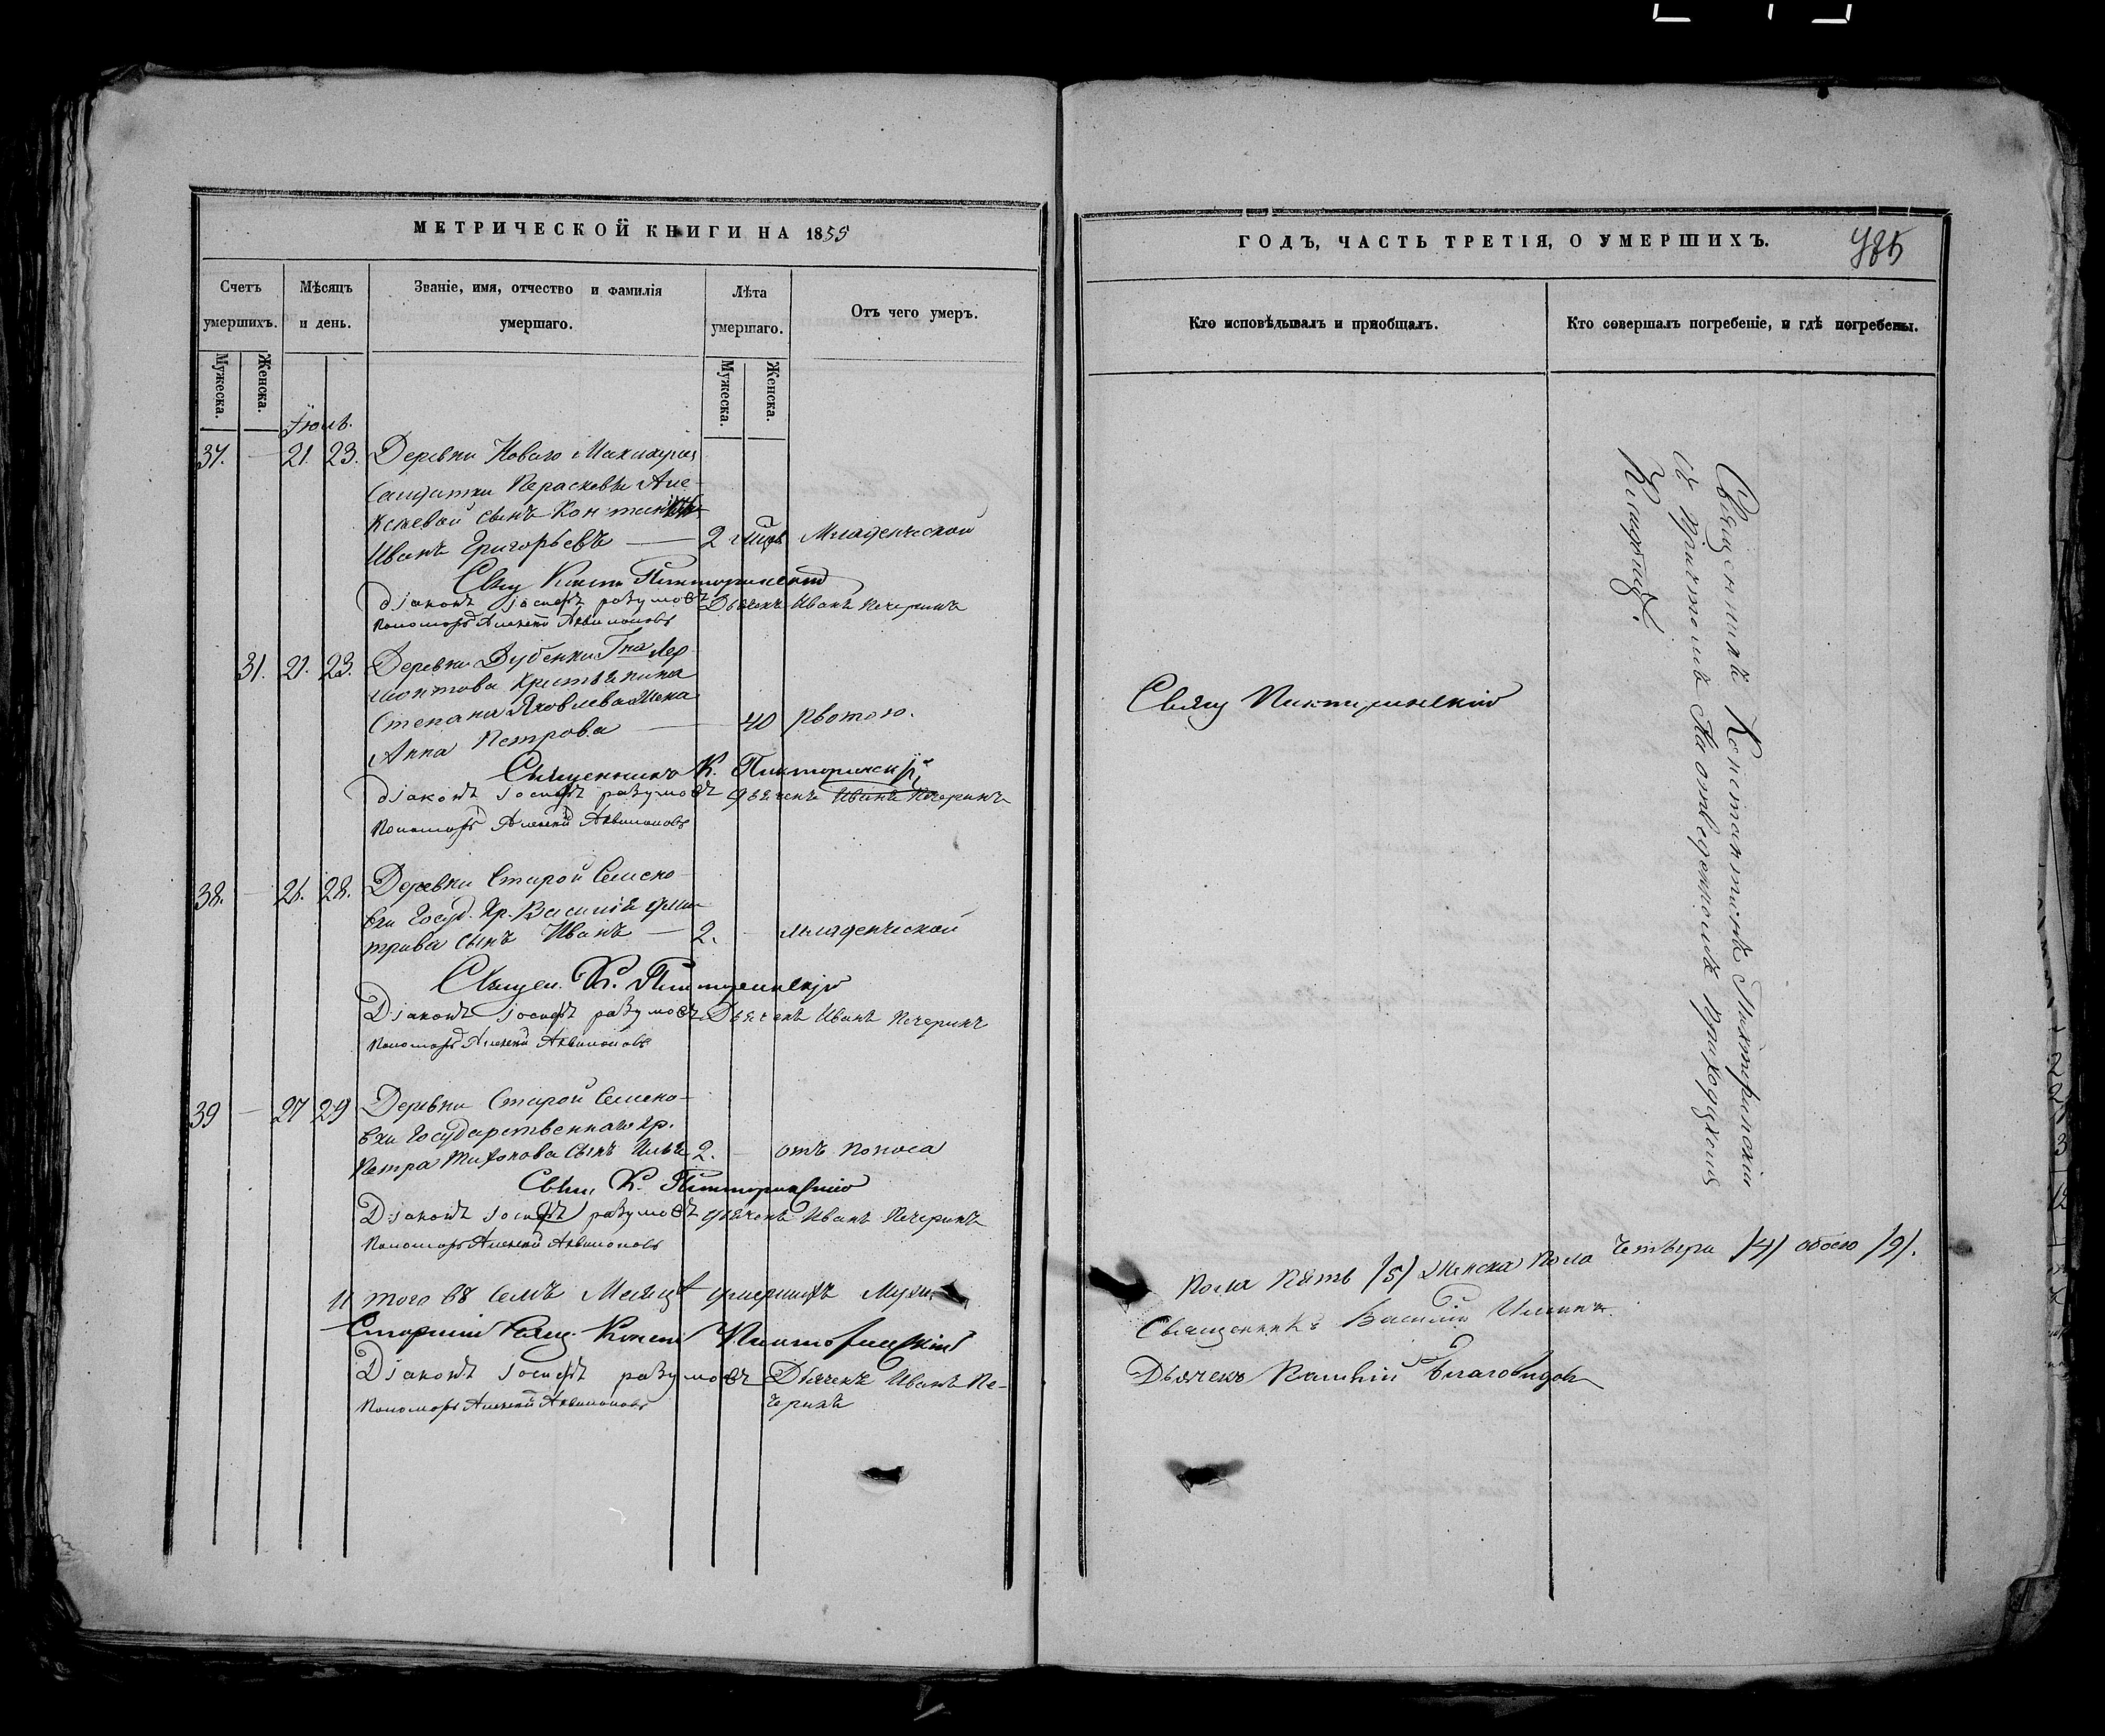 МЕТРИЧЕСКОЙ КНИГИ НА 1855
Счетъ умершихъ.
Мѣсяцъ и день.
Званіе, имя, отчество и фамилія умершаго.
Лѣта умершаго.
Отъ чего умеръ.
Мужеска.
Женска.
Мужеска.
Женска.
Іюль.
37. — 21. 23. Деревни Новаго
Салдатки Парасковьи Але-
ксѣевой сынъ
Иванъ Григорьевъ — 2 Младенческой
Свящ Конст Пикторинский
Діаконъ Іосифъ Разумовъ Дьячекъ Иванъ Печеринъ
Пономарь Алексѣй Аквилоновъ
31. 21. 23. Деревни Дубенки Гна Лер
монтова Крестьянина
Степана Яковлева жена
Анна Петрова — 40 рвотою.
Священникъ К. Пикторинскій
Діаконъ Іосифъ Разумовъ Дьячекъ Иванъ Печеринъ
Пономарь Алексѣй Аквилоновъ
38. — 26. 28. Деревни Старой
вки Госуд. Кр. Василія Дми-
трива сынъ Иванъ — 2. — младенческой
Священ. К. Пикторинскій
Діаконъ Іосифъ Разумовъ Дьячекъ Иванъ Печеринъ
Пономарь Алексѣй Аквилоновъ
39 — 27 29 Деревни Старой
вки Государственнаго Кр.
Петра Тихонова сынъ Илья 2. — отъ поноса
Свящ. К. Пикторинскій
Діаконъ Іосифъ Разумовъ Дьячекъ Иванъ Печеринъ
Пономарь Алексѣй Аквилоновъ
И того въ семъ Месяцѣ умершихъ Муже
Старший Свящ. Конст Пикторинскій
Діаконъ Іосифъ Разумовъ Дьячекъ Иванъ Пе-
черинъ
Пономарь Алексѣй Аквилоновъ
ГОДЪ, ЧАСТЬ ТРЕТІЯ, О УМЕРШИХЪ.
485
Кто исповѣдывалъ и приобщалъ.
Кто совершалъ погребеніе, и гдѣ погребены.
Свящ Пикторинскій
Священникъ Константинъ Пикторинскій
съ Причтомъ На отведенномъ Приходскомъ
Кладбищѣ.
Пола Пять /5/ Женска Пола Четвера /4/ обоего /9/.
Священникъ Василій Ильинъ
Дьячекъ Благовидовъ